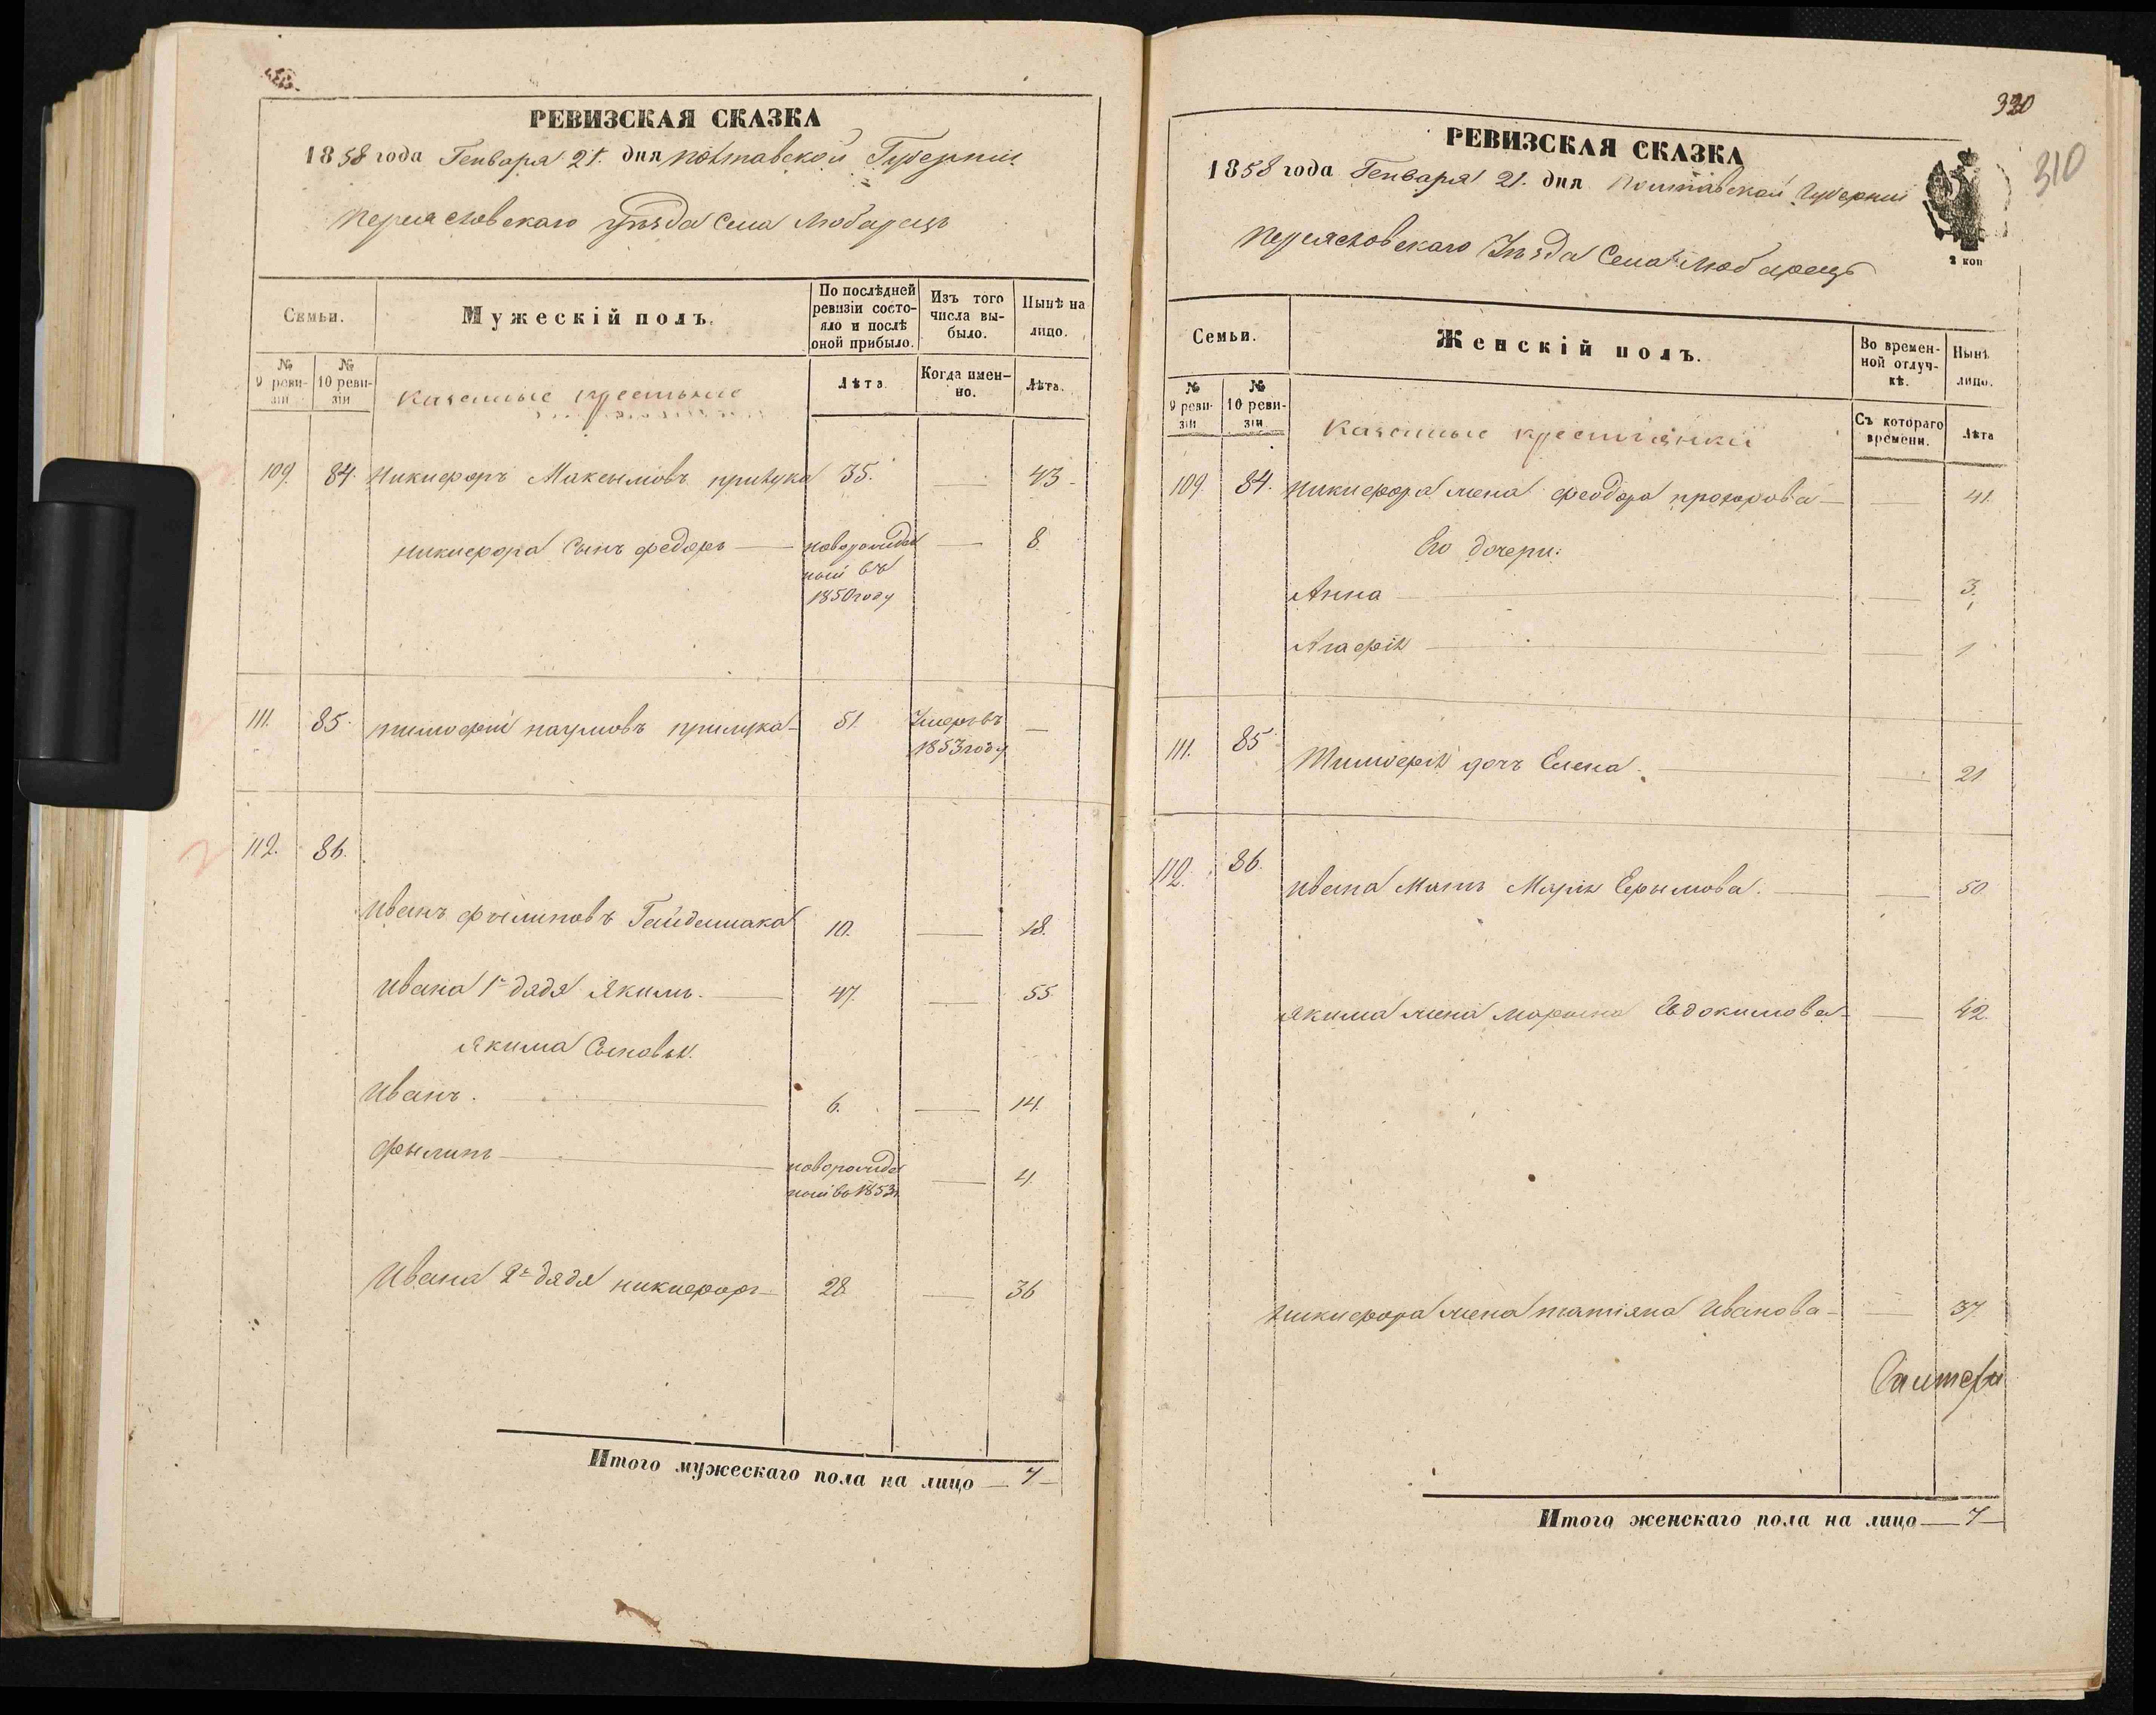 РЕВИЗСКАЯ СКАЗКА
1858 года Генваря 21. дня Полтавской Губернии
Переясловскаго уѣзда Села Любарецъ
Семьи.
Мужескій полъ.
По послѣдней ревизіи состояло и послѣ оной прибыло.
Изъ того числа выбыло.
Нынѣ на лицо.
№ 9 ревизіи
№ 10 ревизіи
Казенные крестьяне
Лѣта
Когда именно.
Лѣта.
109. 84. Никифоръ Максымовъ 35. — 43
Никифора Сынъ Федоръ — новорожден — 8.
ный въ
1850 году
111. 85. Тимофей Наумовъ 51. Умеръ въ —
1853 году
112. 86.
Иванъ Филиповъ Гайдамака 10. — 18.
Ивана 1й дядя Якимъ. — 47. — 55.
Якима Сыновья.
Иванъ. — 6. — 14.
Филипъ — новорожде — 4.
ный въ 1853
Ивана 2й дядя Никифоръ — 28. — 36
Итого мужескаго пола на лицо — 7 —
320
310
РЕВИЗСКАЯ СКАЗКА
1858 года Генваря 21. дня Полтавской Губернии
Переясловскаго Уѣзда Села Любарецъ
2 коп
Семьи.
Женскій полъ.
Во временной отлучкѣ.
Нынѣ лицо.
№ 9 ревизіи
№ 10 ревизіи
Казенные крестьянки
Съ котораго времени.
Лѣта
109. 84. Никифора жена Феодора Прохорова — — 41.
Его дочери:
Анна — — 3.
Агафія — — 1
111. 85. Тимофея дочь Елена. — — 21
112. 86. Ивана Мать Марія Ефымова. — — 50
Якима жена Марына Евдокимова — — 42.
Никифора жена Татіяна Иванова — — 37
Итого женскаго пола на лицо — 7 —